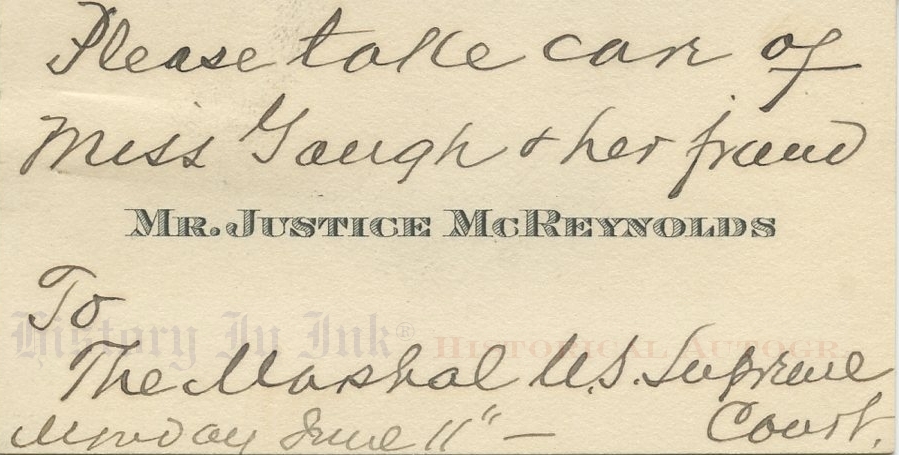 Please take care of
Miss Gough & her friend
MR. JUSTICE MCREYNOLDS
To
History In Ink® HISTORICAL AUTOGR
The Marshal U.S. Supreme
Court.
Monday June 11" —